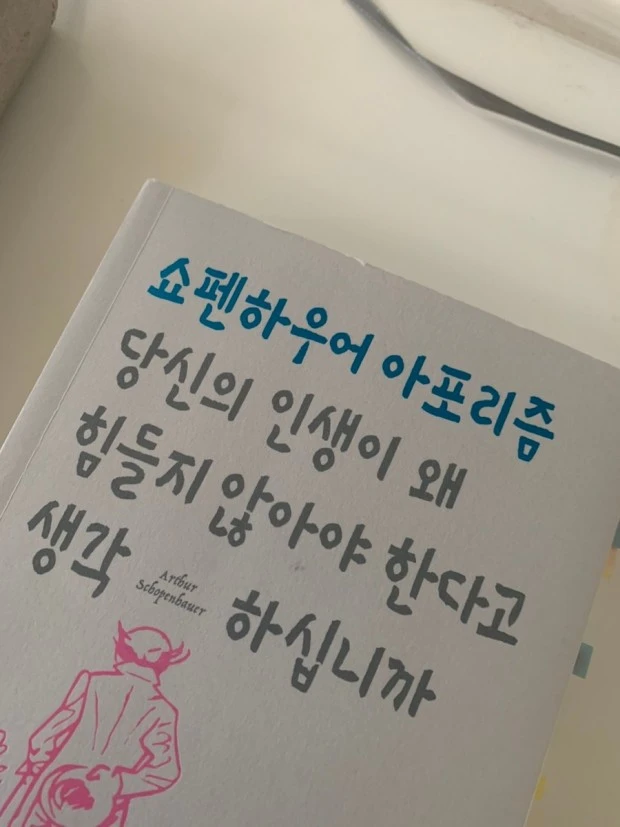 쇼펜하우어 아포리즘
당신의 인생이 왜
힘들지 않아야 한다고
생각
Arthur
Schopenhauer
하십니까